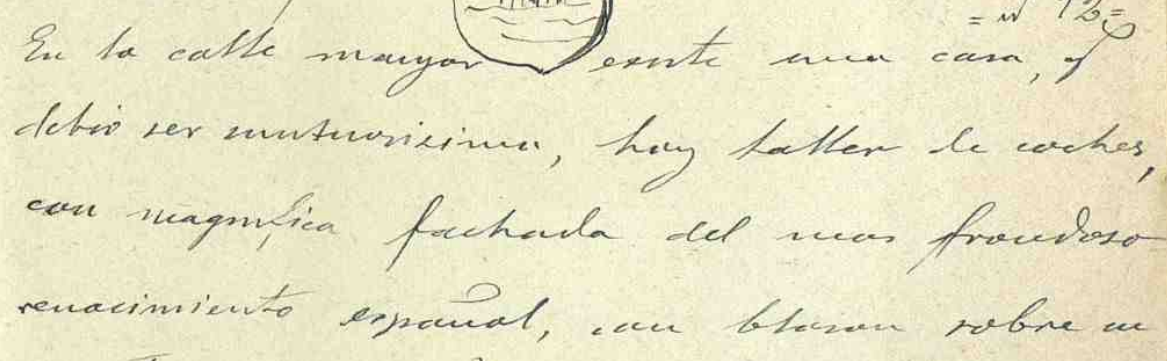 = nº 12=
En la calle mayor existe una casa, q
debio ser suntuosisima, hoy taller de coches,
con magnifica fachada del mas frondoso
renacimiento español, con blason sobre